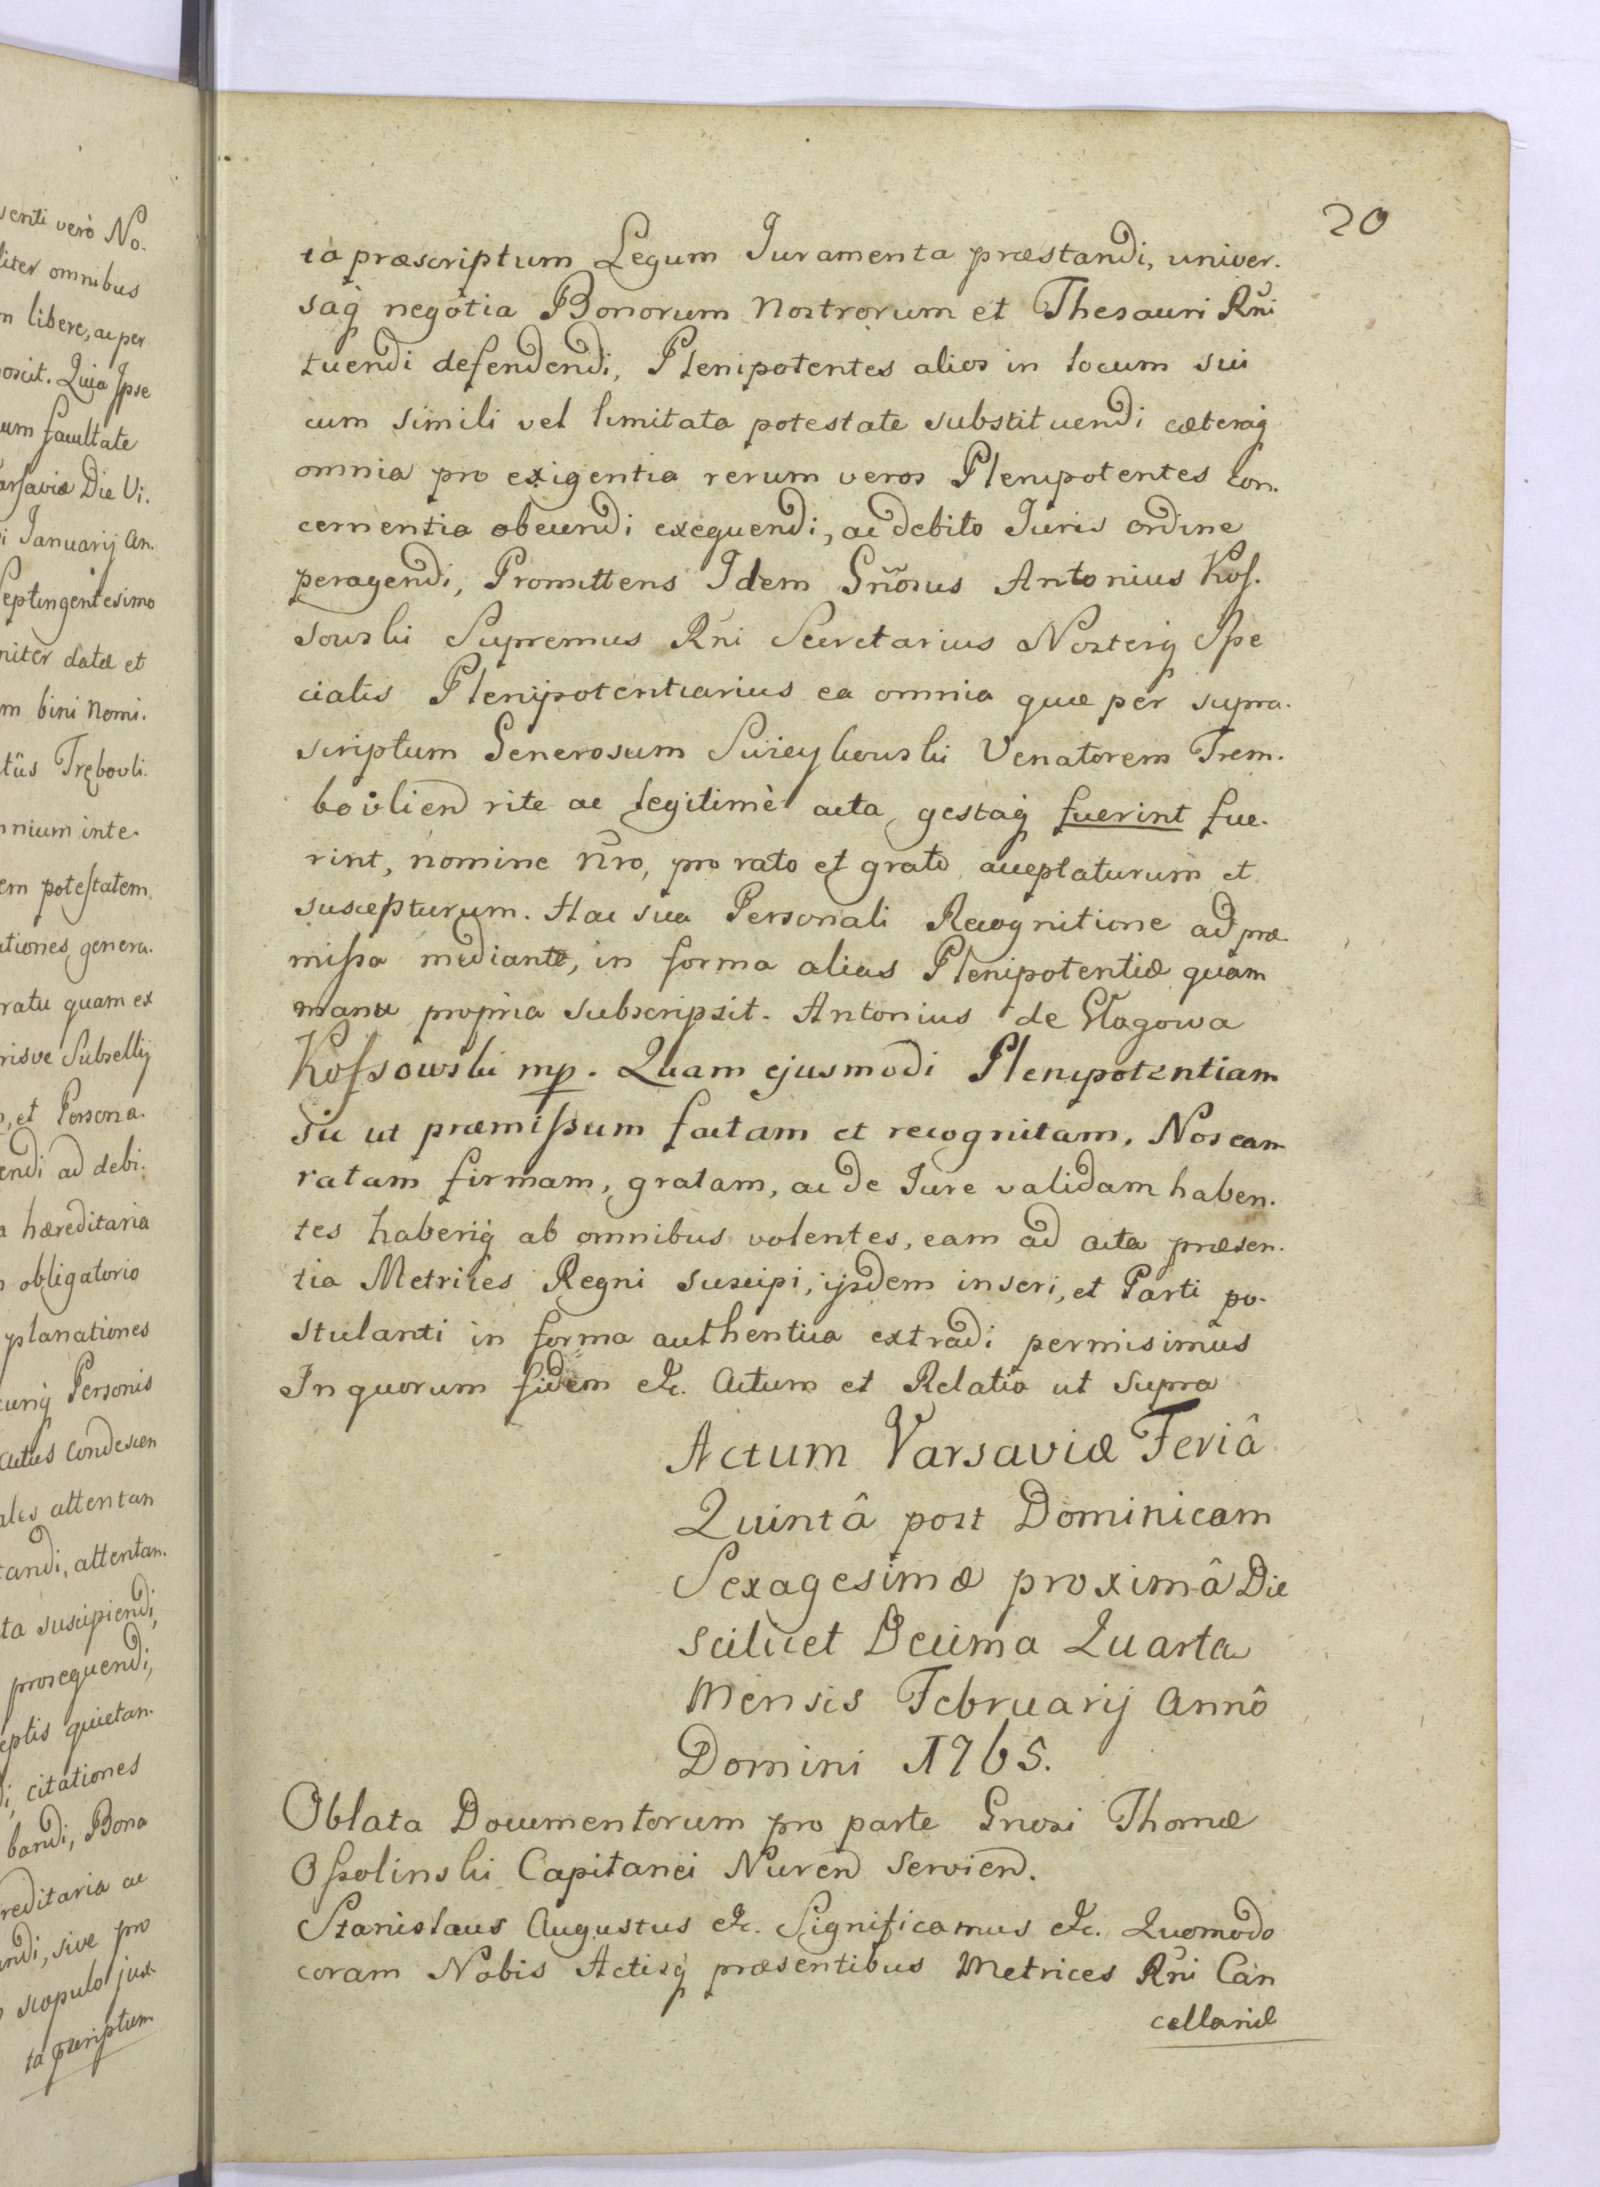 venti verò No.
liter omnibus
m libere, ac per
oscit. Quia Ipse
um facultate
arsaviæ Die Vi.
i Januarij An.
Septingentesimo
niter datæ et
m bini nomi.
tûs Trębovli.
mnium inte.
em potestatem
ationes genera.
ratu quam ex
risve Subsellij
et Persona.
endi ad debi.
a hæreditaria
obligatorio
planationes
cunq Personis
cutus Condescen
ales attentan
tandi, attentan.
ta suscipiendi,
prosequendi,
eptis quietan.
citationes
bandi, Bona
reditaria ac
andi, sive pro
scopulo jux
ta præscriptum
20
ta præscriptum Legum Juramenta præstandi, univer.
saq negotia Bonorum Nostrorum et Thesauri Rñi
tuendi defendendi, Plenipotentes alios in locum sui
cum simili vel limitata potestate substituendi cæteraq
omnia pro exigentia rerum veros Plenipotentes con.
cernentia obeundi exequendi, ac debito Juris ordine
peragendi, Promittens Idem Gñosus Antonius Kos.
sowski Supremus Rñi Secretarius Nosterq Spe
cialis Plenipotentiarius ea omnia quæ per supra.
scriptum Generosum Swieykowski Venatorem Trem.
bovlien rite ac legitimè acta, gestaq fuerint fue.
rint, nomine ñro, pro rato et grato acceptaturum et
suscepturum. Hac sua Personali Recognitione ad præ.
missa mediante, in forma alias Plenipotentiæ quam
manu propria subscripsit. Antonius de Głogowa
Kossowski mp. Quam ejusmodi Plenipotentiam
sic ut præmissum factam et recognitam, Nos eam
ratam firmam, gratam, ac de Jure validam haben.
tes haberiq ab omnibus volentes, eam ad acta præsen.
tia Metrices Regni suscipi, ijsdem inseri, et Parti po.
stulanti in forma authentica extradi permisimus
In quorum fidem etc. Actum et Relatio ut Supra
Actum Varsaviæ Feriâ
Quintâ post Dominicam
Sexagesimæ proximâ Die
scilicet Decima Quarta
Mensis Februarij Annô
Domini 1765.
Oblata Documentorum pro parte Gnosi Thomæ
Ossolinski Capitanei Nuren servien.
Stanislaus Augustus etc. Significamus etc. Quomodo
coram Nobis Actisq præsentibus Metrices Rñi Can
cellariæ